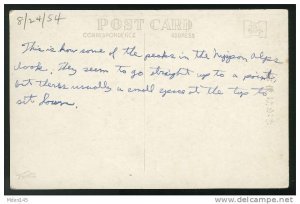 8/24/54
POST CARD
CORRESPONDENCE
ADDRESS
This is how some of the peaks in the Nippon Alps
look. They seem to go straight up to a point,
but theres usually a small space at the top to
sit down.
Memoer145
delcampe.net